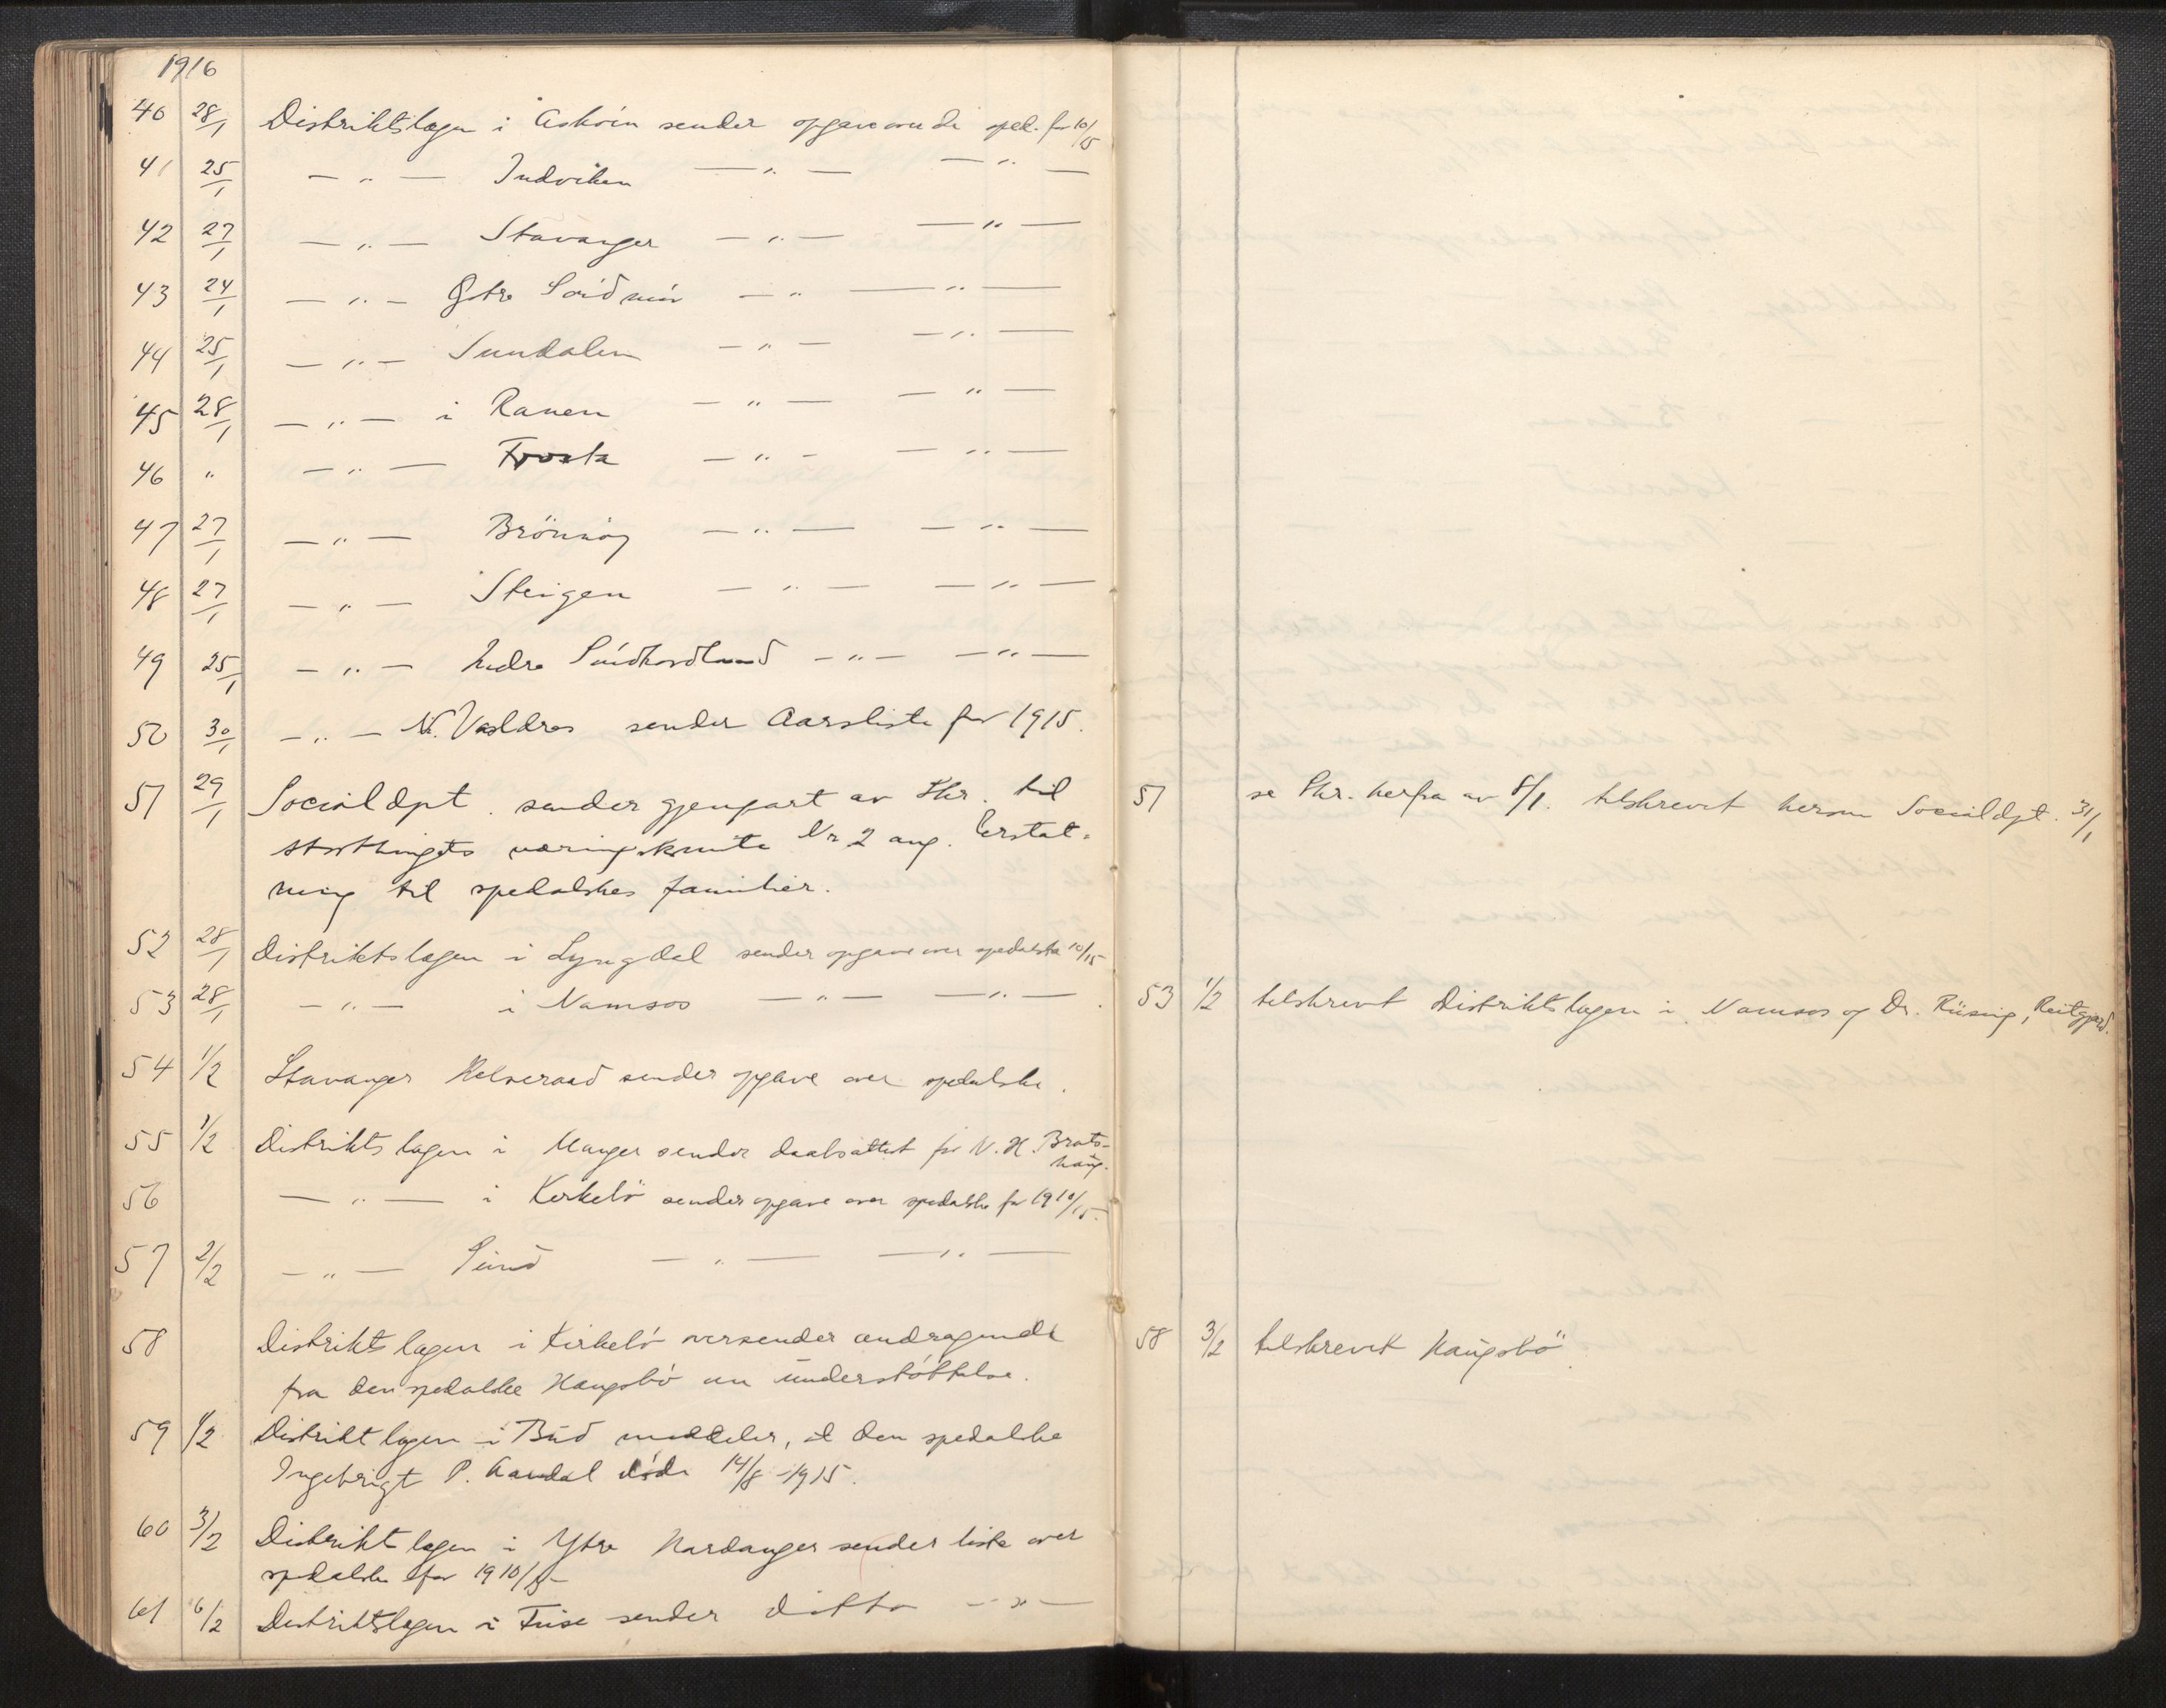 1916
40 28/1 Distriktslægen i Askøen sender opgave over de sped. for 10/15
41 25/1 — " — Indviken — " — — " — —
42 27/1 — " — Stavanger — " — — " —
43 24/1 — " — Østre Söndmör — " — " —
44 25/1 — " — Sundalen — " — — " —
45 28/1 — " — i Ranen — " — — " —
46 " — " — Frosta — " — — " —
47 27/1 — " — Brönnöy — " — — " —
48 27/1 — " — Steigen — " — — " —
49 25/1 — " — Indre Söndhordland — " — — " —
50 30/1 — " — N. Valdres sender Aarsliste for 1915.
51 29/1 Socialdpt. sender gjenpart av Skr. til
storthingets næringskomite Nr 2 ang. Erstat-
ning til spedalskes familier.
52 28/1 Distriktslægen i Lyngdal sender opgave over spedalske 10/15
53 28/1 — " — i Namsos — " — — " — .
54 1/2 Stavanger Helseraad sender opgave over spedalske.
55 1/2 Distriktslægen i Manger sender daabsattest for N. H. Brats-
haug.
56 — " — i Kirkebö sender opgave over spedalske for 1910/15.
57 2/2 — " — Sund — " — — " —
58 Distriktslægen i Kirkebö oversender andragende
fra den spedalske Haugsbö om understöttelse.
59 1/2 Distriktslægen i Bud meddeler, at den spedalske
Ingebrigt P. Aandal döde 14/8 - 1915.
60 3/2 Distriktslægen i Ytre Hardanger sender liste over
spedalske for 1910/15
61 6/2 Distriktslægen i Fuse sender ditto — " —
51 se Skr. herfra av 8/1. tilskrevet herom Socialdpt. 31/1
53 1/2 tilskrevet Distriktslægen i Namsos og Dr. Riising, Reitgjerd.
58 3/2 tilskrevet Haugsbö.